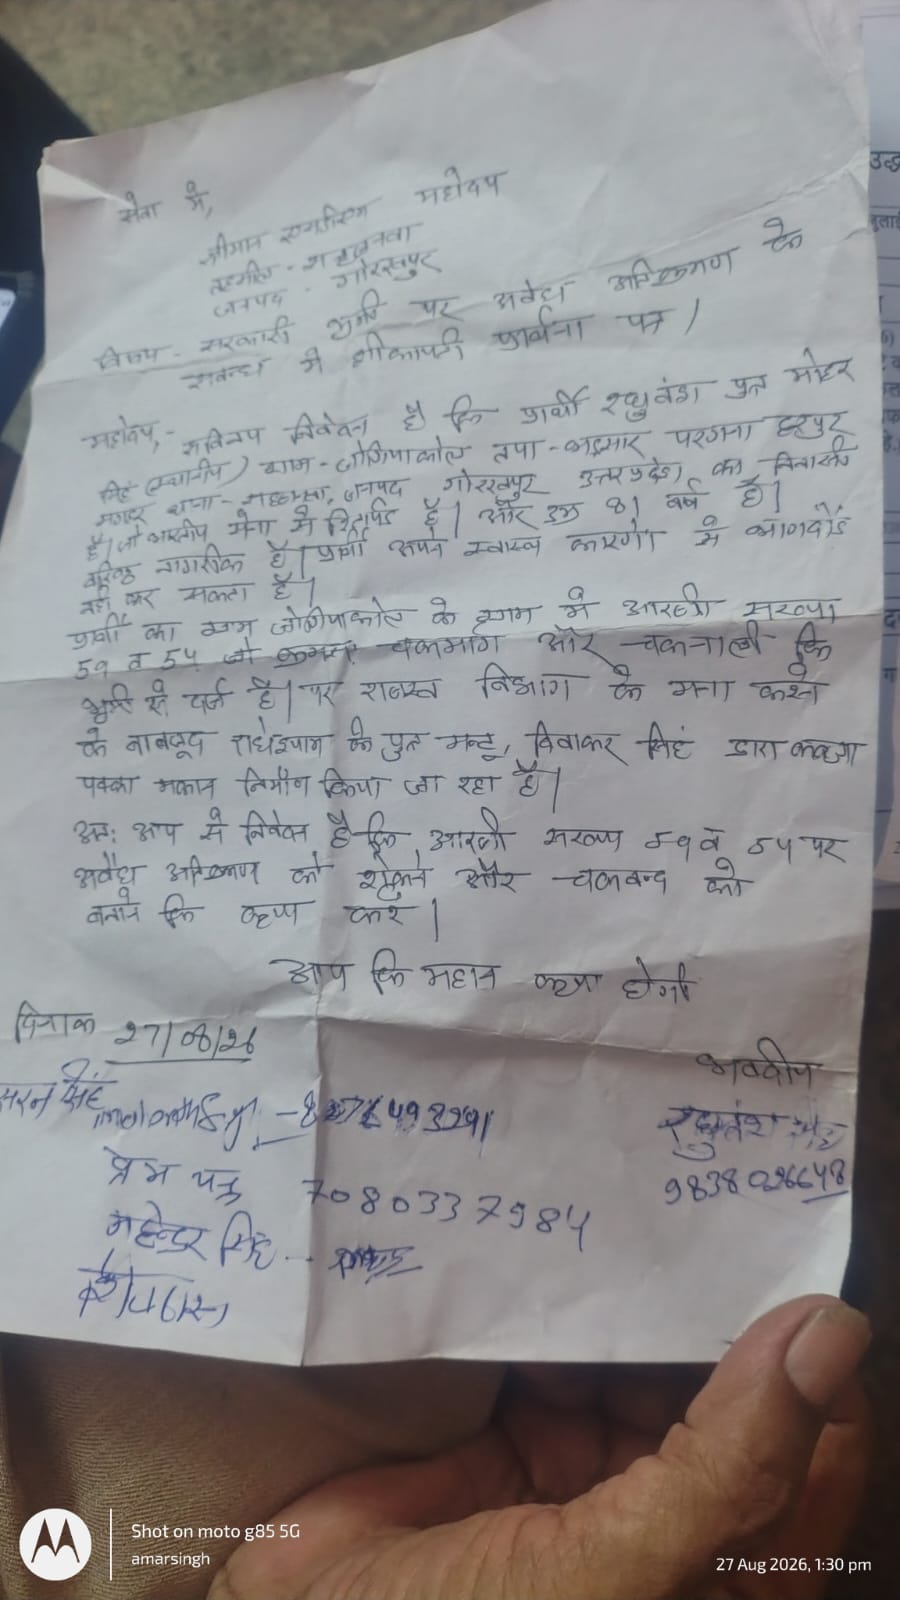 सेवा में,
श्रीमान एसडीएम महोदय
तहसील - सहजनवा
जनपद - गोरखपुर
विषय - सरकारी भूमि पर अवैध अतिक्रमण के
सबन्ध मे शीकायती प्रार्थना पत्र /
महोदय,- सविनय निवेदन है कि प्रार्थी रघुवंश पुत्र
सिंह (स्थानीय) ग्राम - जोगियाकोल तपा - परगना हसनपुर
मगहर थाना - जनपद गोरखपुर उत्तर प्रदेश, का निवासी
है। जो भारतीय सेना मे रिटार्यड है। और उम्र 81 वर्ष है।
वरिष्ठ नागरीक है। प्रार्थी अपने स्वास्थ कारणो से भागदौड़
नही कर सकता है।
प्रार्थी का ग्राम जोगियाकोल के ग्राम मे आराजी सख्या
59 व 54 जो चकमार्ग और चकनाली कि
भूमि से दर्ज है। पर राजस्व विभाग के मना करने
के बावजूद राधेश्याम के पुत्र मन्टू, दिवाकर सिहं द्वारा कब्जा
पक्का मकान निर्माण किया जा रहा है।
अतः आप से निवेदन है कि, आराजी सख्या 59 व 54 पर
अवैध अतिक्रमण को रोकने और चकबन्द को
बनाने कि कृपा करे।
आप कि महान कृपा होगी
दिनाक 27/08/26
भवदीय
सरन सिंह
रघुवंश सिंह
9838026648
प्रेम चन्द्र 7080337984
महेन्द्र सिंह
उद्ध
जुलाई
Shot on moto g85 5G
amarsingh
27 Aug 2026, 1:30 pm